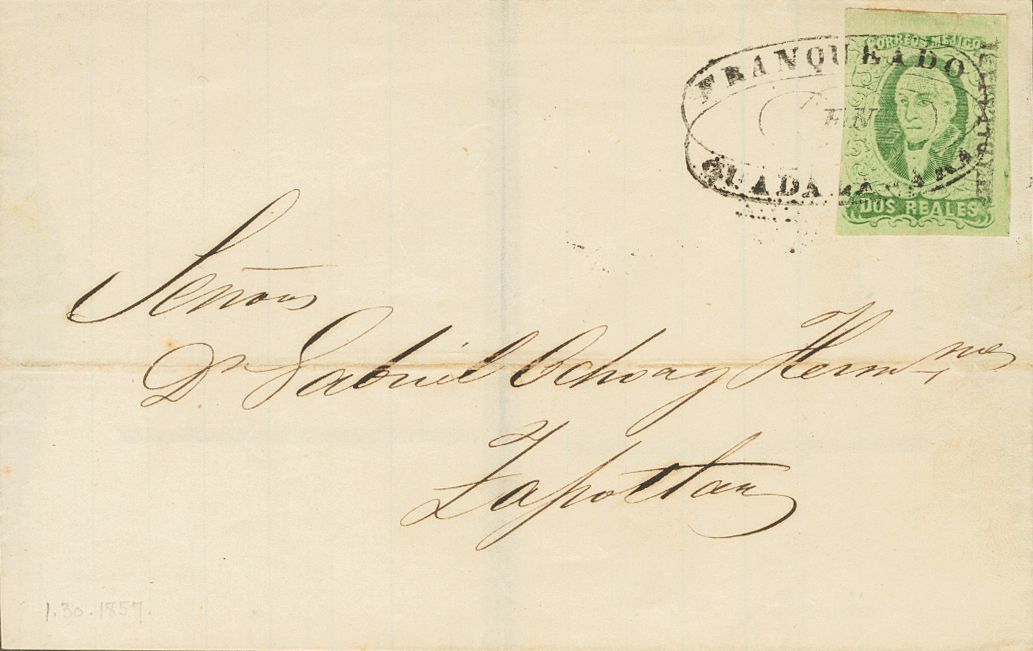 FRANQUEADO
EN
GUADALAJARA
CORREOS MEJICO
DOS REALES
GUADALAJARA
Señores
Dn Gabriel Ochoa y Hermnos
Zapotlan
1.30.1857.